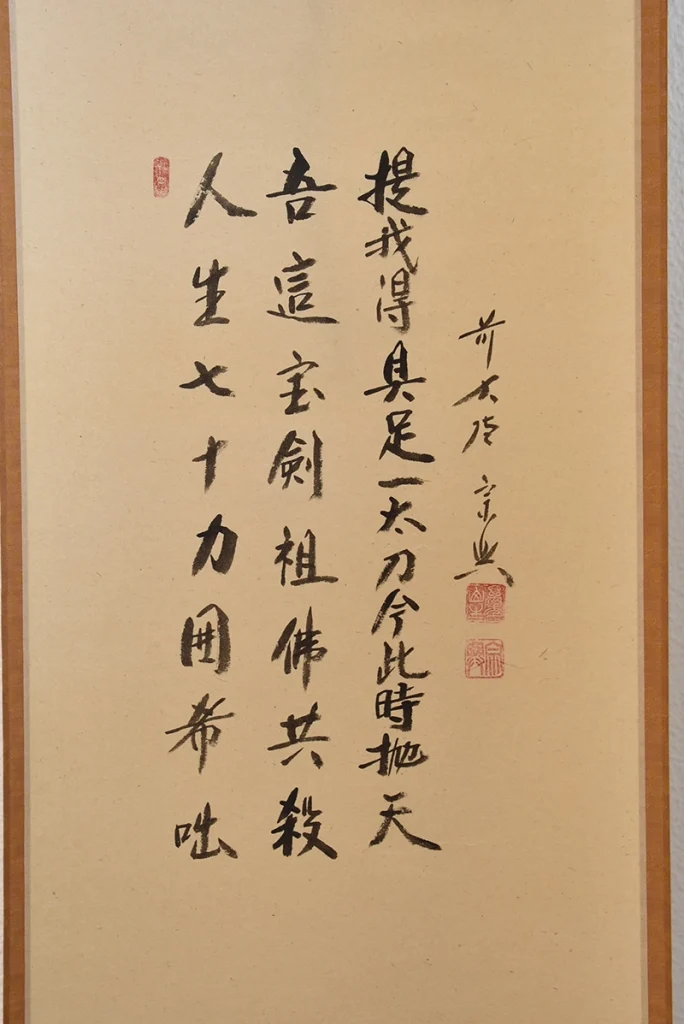 人生七十力囲希咄
吾這宝剣祖佛共殺
提我得具足一太刀今此時抛天
前大徳 宗